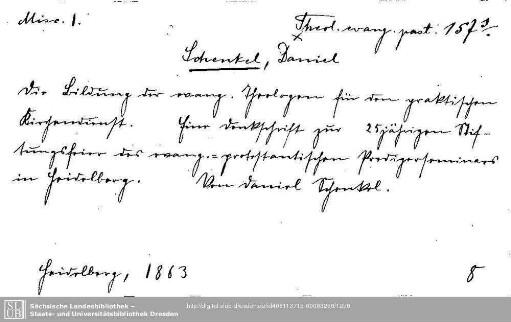 Misc. 1.
Theol. evang. past. 157 d.
Schenkel, Daniel
Die Bildung der evang. Theologen für den praktischen
Kirchendienst. Eine Denkschrift zur 25jährigen Stif-
tungsfeier des evang.=protestantischen Predigerseminars
in Heidelberg. Von Daniel Schenkel.
Heidelberg, 1863
8
Sächsische Landesbibliothek –
Staats- und Universitätsbibliothek Dresden